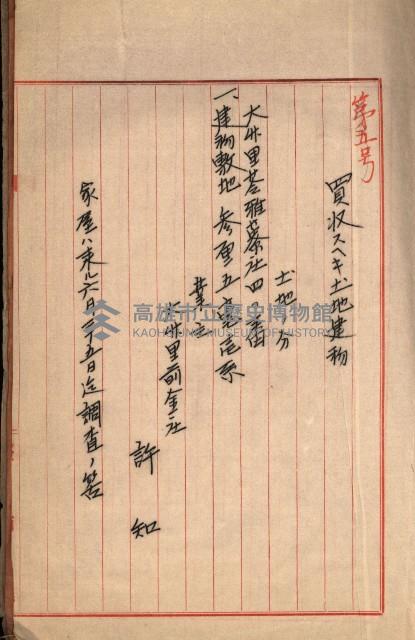 第五号
買収スヘキ土地建物
土地ノ分
大竹里苓雅藔庄四
一、建物敷地 参厘五毫
業主
大竹里前金庄
許 知
家屋ハ来ル六日ヨリ五日迄調査ノ筈
高雄市立歷史博物館
KAOHSIUNG MUSEUM OF HISTORY